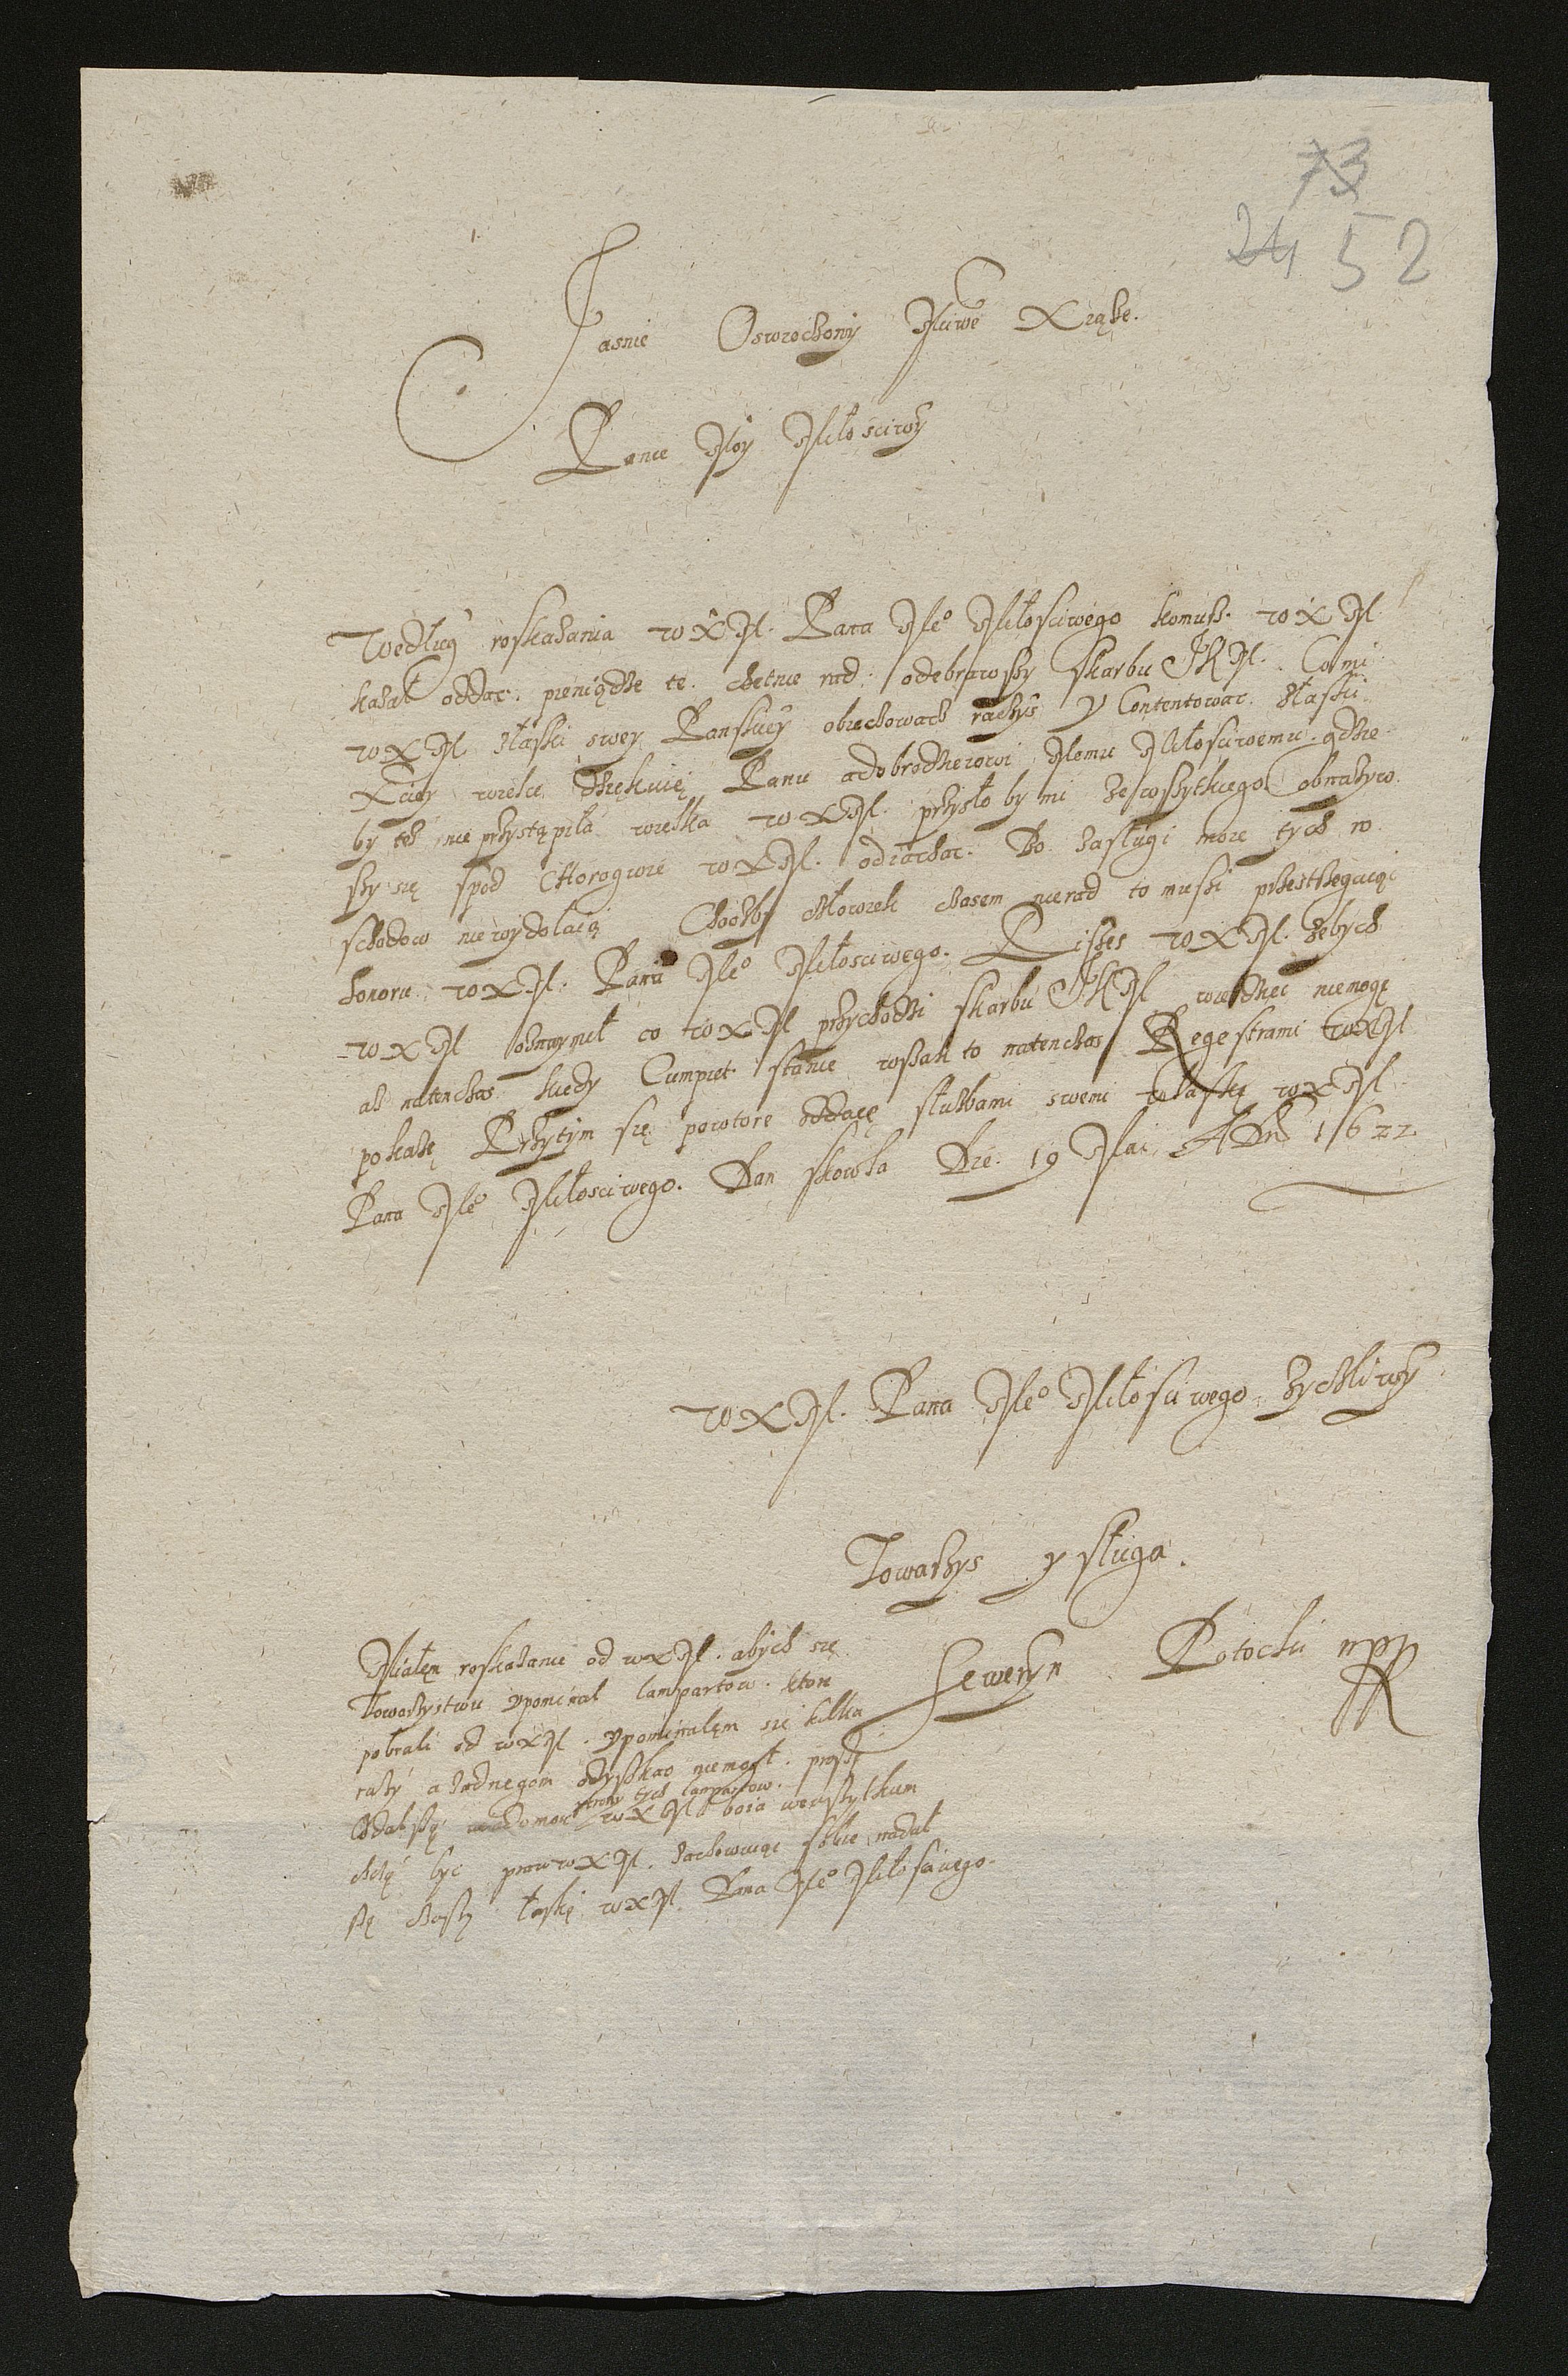 73
24 52
Jasnie Oswiecħony Mciwe Xiąże.
Panie Moy Miłosciwy
Wedlug roskazania WXM. Pana Meº Miłosciwego komusz. WXM
kazał oddac. pieniądze te. chetnie rad. odebrawszy skarbu JKM. Co mi
WXM złaski swey Panskiey obiecowacz raczys y Contentowac. złaski
Xciey wielce dziękuię Panu adobrodzieiowi Memu Miłosciwemu. gdzie
by też nie przystąpiła wielka WXM. przysło by mi ze wszytkiego obnażyw
szy się spod Chorogwie WXM. odiachac. Bo zasługi moie tych ro
schodow niewydolaią Choczby człowiek czasem nierad to musi przestrzegaiąc
honoru WXM. Pana Meº Miłosciwego. Pisses WXM. żebych
WXM oznaymil co WXM przychodzi skarbu JKM wiedziec niemogę
aż natenczas kiedy Cumput stanie wszak to natenczas Regestrami WXM
pokażę Przytym się powtore oddaię służbami swemi w łaskę WXM
Pana Meº Miłosciwego. Dan Die. 19 Mai ADni 1622
WXM. Pana Meº Miłosciwego życzliwy
Towarzys y sługa.
Seweryn Potocki mpp
Miałem roskazanie od WXM. abych się
Towarzystwu vpominał lampartow. ktore
pobrali od WXM. vpominałem się kilka
razy a żadnegom odyskac niemogł. proszę
strony tych lampartow.
WXM boia wewszytkim
chcę byc praw WXM. zachowuiąc sobie nadal
łaskę WXM. Pana Meº Miłosciwego.